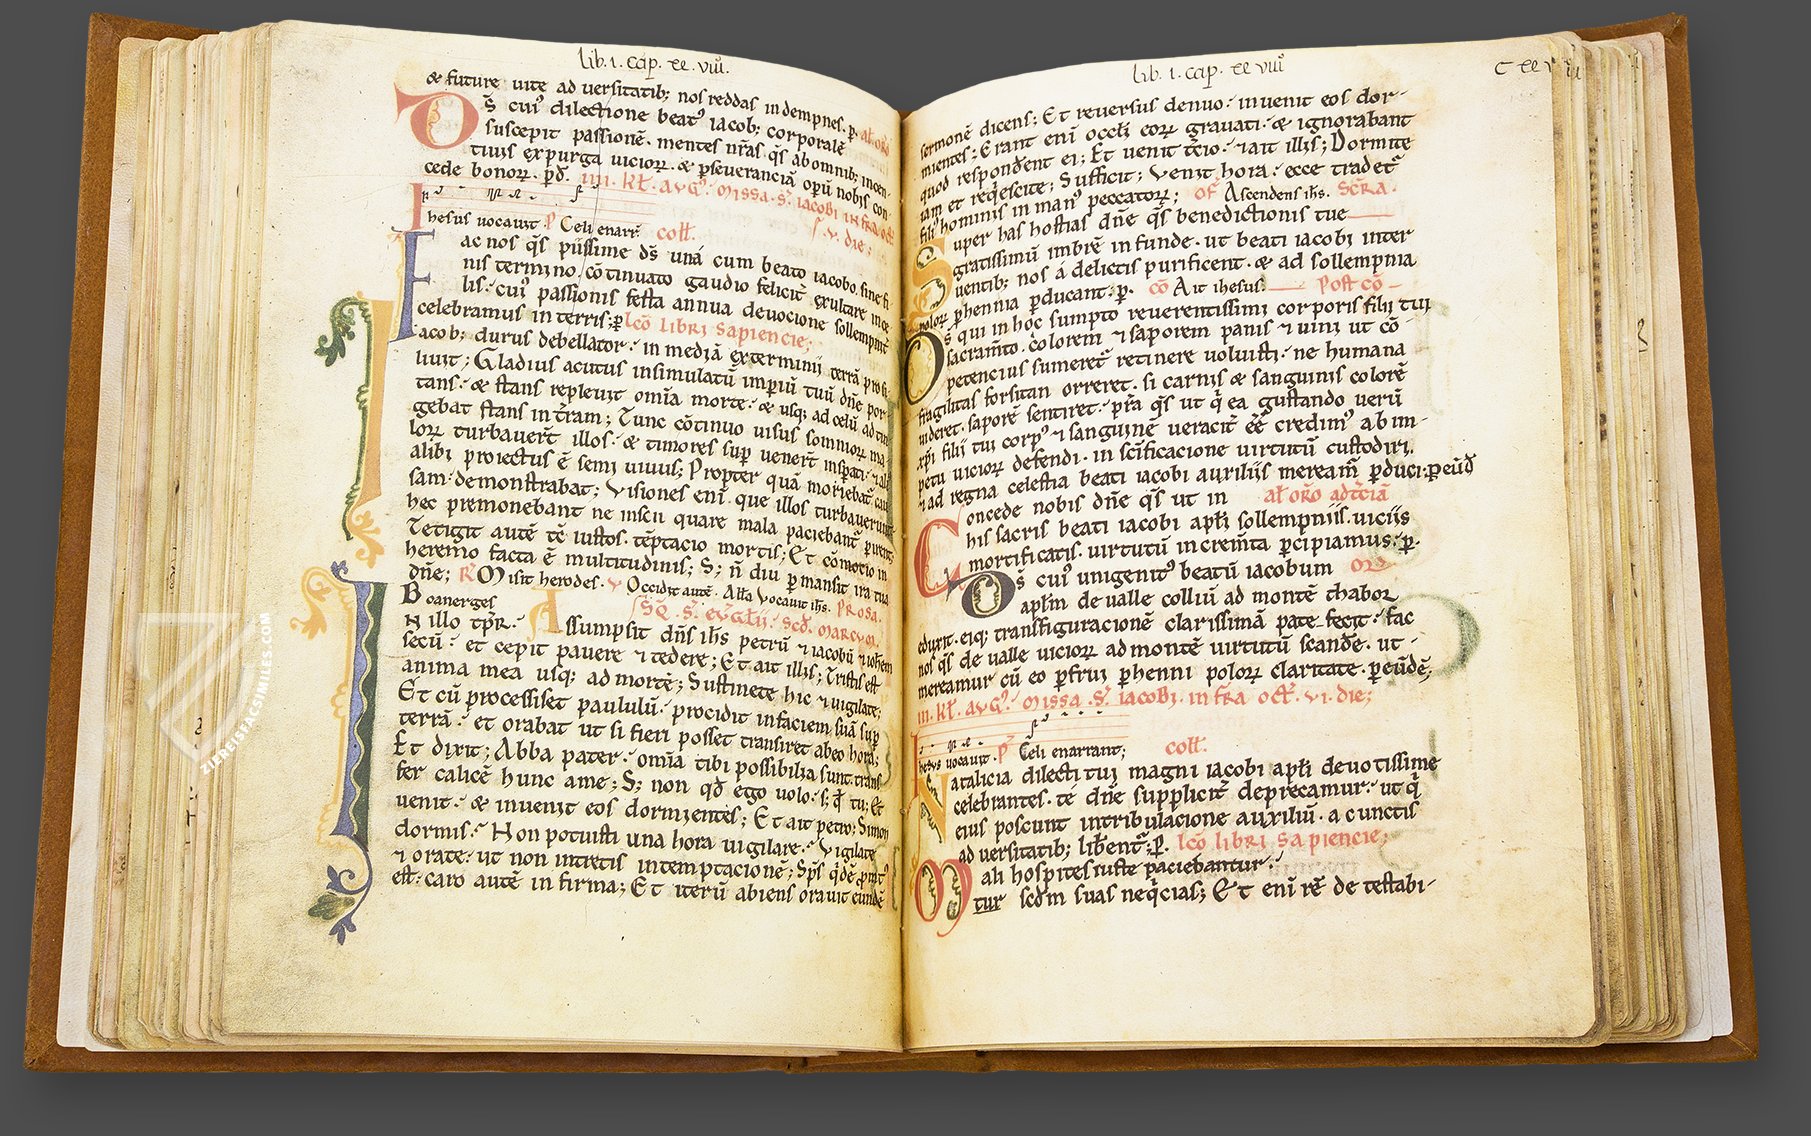 Lib. I. cap. xx. viii.
& future uite ad uersitatib; nos reddas indempnes. p. al' oro
D s̄ cui' dilectione beat' iacob; corporalē
suscepit passionē. mentes nr̄as q̄s ab omnib; incen
tiuis expurga uicioꝝ. & p̄seueranciā opū nobis con
cede bonoꝝ. p̄ d̄. iiii. kł. avg'. missa. s̄. iacobi infra oct̄.
v. die;
Ihesus uocauit P Celi enarr̄. coll̄.
F ac nos q̄s piissime d̄s unā cum beato iacobo. sine fi
nis termino. cōtinuato gaudio felicit̄ exultare in ce
lis. cui' passionis festa annua deuocione sollempnit̄
celebramus in terris; p̄ Lcō libri sapiencie;
Iacob; durus debellator. in mediā exterminii terrā prosi
liuit; Gladius acutus insimulatū impiū tuū dn̄e por
tans. & stans repleuit omīa morte. & usq; ad celū adtin
gebat stans in t̄ram; Tunc cōtinuo uisus somnioꝝ ma
loꝝ turbauer̄t illos. & timores sup̄ uener̄t insp̄ati. & ali
alibi proiectus ē semi uiuus; Propter quā moriebat̄ cau
sam. demonstrabat; Visiones enī que illos turbauerunt
hec premonebant ne inscii quare mala paciebant̄ perirent;
Tetigit autē tē iustos. tēptacio mortis; Et cōmotio in
heremo facta ē multitudinis; S; n̄ diu p̄mansit ira tua
dn̄e; R̄ Misit herodes. V Occidit autē. Alla Vocauit ih̄s. Prosa.
Boanerges SQ. S. evgłii. scd̄. marcvm.
N illo tp̄r. Assumpsit dn̄s ih̄s petrū & iacobū & ioh̄em
secū. et cepit pauere & tedere; Et ait illis; Tristis est
anima mea usq; ad mortē; Sustinete hic & uigilate;
Et cū processiset paululū. procidit in faciem suā sup̄
terrā. et orabat ut si fieri posset transiret abeo hora;
Et dixit; Abba pater. omīa tibi possibilia sunt. trans
fer calicē hunc ame; S; non qd̄ ego uolo. s; qd̄ tu; Et
uenit. & inuenit eos dormientes; Et ait petro; Simon
dormis. Non potuisti una hora uigilare. Vigilate
& orate. ut non intretis intemptacionē; Sp̄s q̄dē prōpt'
est. caro autē infirma; Et iterū abiens orauit eundē
Lib. I. cap. xx viii
C xx v iii
sermonē dicens; Et reuersus denuo. inuenit eos dor-
mientes; Erant enī occłi eoꝝ grauati. & ignorabant
quod respondent ei; Et uenit t̄cio. & ait illis; Dormite
iam et req̄escite; Sufficit; Venit hora. ecce tradet̄
fili' hominis in man' peccatoꝝ; OF Ascendens ih̄s. SC̄RA.
S uper has hostias dn̄e q̄s benedictionis tue
gratissimū imbrē in funde. ut beati iacobi inter
uentib; nos á delictis purificent. & ad sollempnia
poloꝝ p̄hennia p̄ducant. p̄. CŌ Ait ihesus. Post cō
D s̄ qui in hoc sumpto reuerentissimi corporis filii tui
sacram̄to. colorem & saporem panis & uini ut cō-
petencius sumeret̄ retinere uoluisti. ne humana
fragilitas forsitan orreret. si carnis & sanguinis colorē
uideret. saporē sentiret. p̄ra q̄s ut q̄ ea gustando uerū
xp̄i filii tui corp' & sanguinē ueracit̄ eē̄ credim' ab im-
petu uicioꝝ defendi. in sc̄ificacione uirtutū custodiri.
& ad regna celestia beati iacobi auxiliis mereamr̄ p̄duci. p̄ eūd̄
C oncede nobis dn̄e q̄s ut in al' orō ad t̄ciā
his sacris beati iacobi apłi sollempniis. uiciis
mortificatis. uirtutū increm̄ta p̄cipiamus. p̄.
D s̄ cui' unigenit' beatū iacobum oro
apłm de ualle colliū ad montē thabor
eduxit. eiq; transfiguracionē clarissimā pate fecit. fac
nos q̄s de ualle uicioꝝ ad montē uirtutū scandē. ut
mereamur cū eo p̄frui p̄henni poloꝝ claritate. p̄ eūdē;
iii. kł. avg'. missa. s̄. iacobi. infra oct̄. vi. die;
Ihesus uocauit. P Celi enarrant; coll̄.
N atalicia dilecti tui magni iacobi apłi deuotissime
celebrantes. té dn̄e supplicit̄ deprecamur. ut q̄
eius poscunt intribulacione auxiliū. a cunctis
ad uersitatib; lib̄ent̄; p̄. Lcō libri sapiencie;
M ali hospites iuste paciebantur.
tur scd̄m suas neq̄cias; Et enī rē de testabi-
ZIEREISFACSIMILES.COM